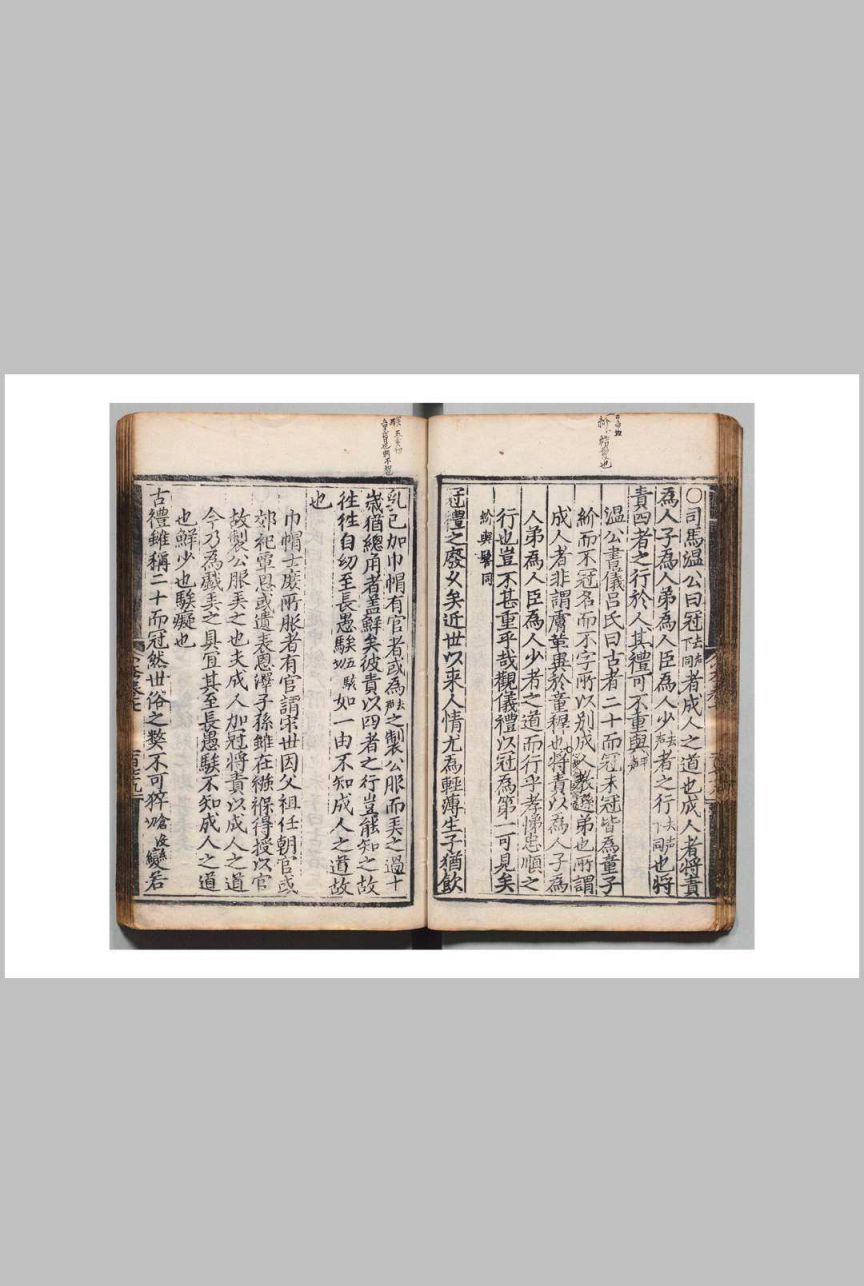 ○司馬溫公曰冠去聲下同者成人之道也成人者將責
為人子為人弟為人臣為人少去聲者之行去聲下同也將
責四者之行於人其禮可不重與平聲
溫公書儀呂氏曰古者二十而冠未冠皆為童子
紒而不冠名而不字所以別成人教遜弟也所謂
成人者非謂膚革異於童穉也將責以為人子為
人弟為人臣為人少者之道而行乎孝悌忠順之
行也豈不甚重乎哉觀儀禮以冠為第一可見矣
紒與髻同
冠禮之廢乆矣近世以来人情尤為輕薄生子猶飲
乳已加巾帽有官者或為去聲之製公服而弄之過十
歲猶總角者盖鮮矣彼責以四者之行豈能知之故
徃徃自幼至長愚騃五駭切如一由不知成人之道故
也
巾帽士庶所服者有官謂宋世因父祖任朝官或
郊祀覃恩或遺表恩澤子孫雖在襁褓得授以官
故製公服弄之也夫成人加冠將責以成人之道
今乃為戲弄之具宜其至長愚騃不知成人之道
也鮮少也騃癡也
古禮雖稱二十而冠然世俗之獘不可猝倉没切變若